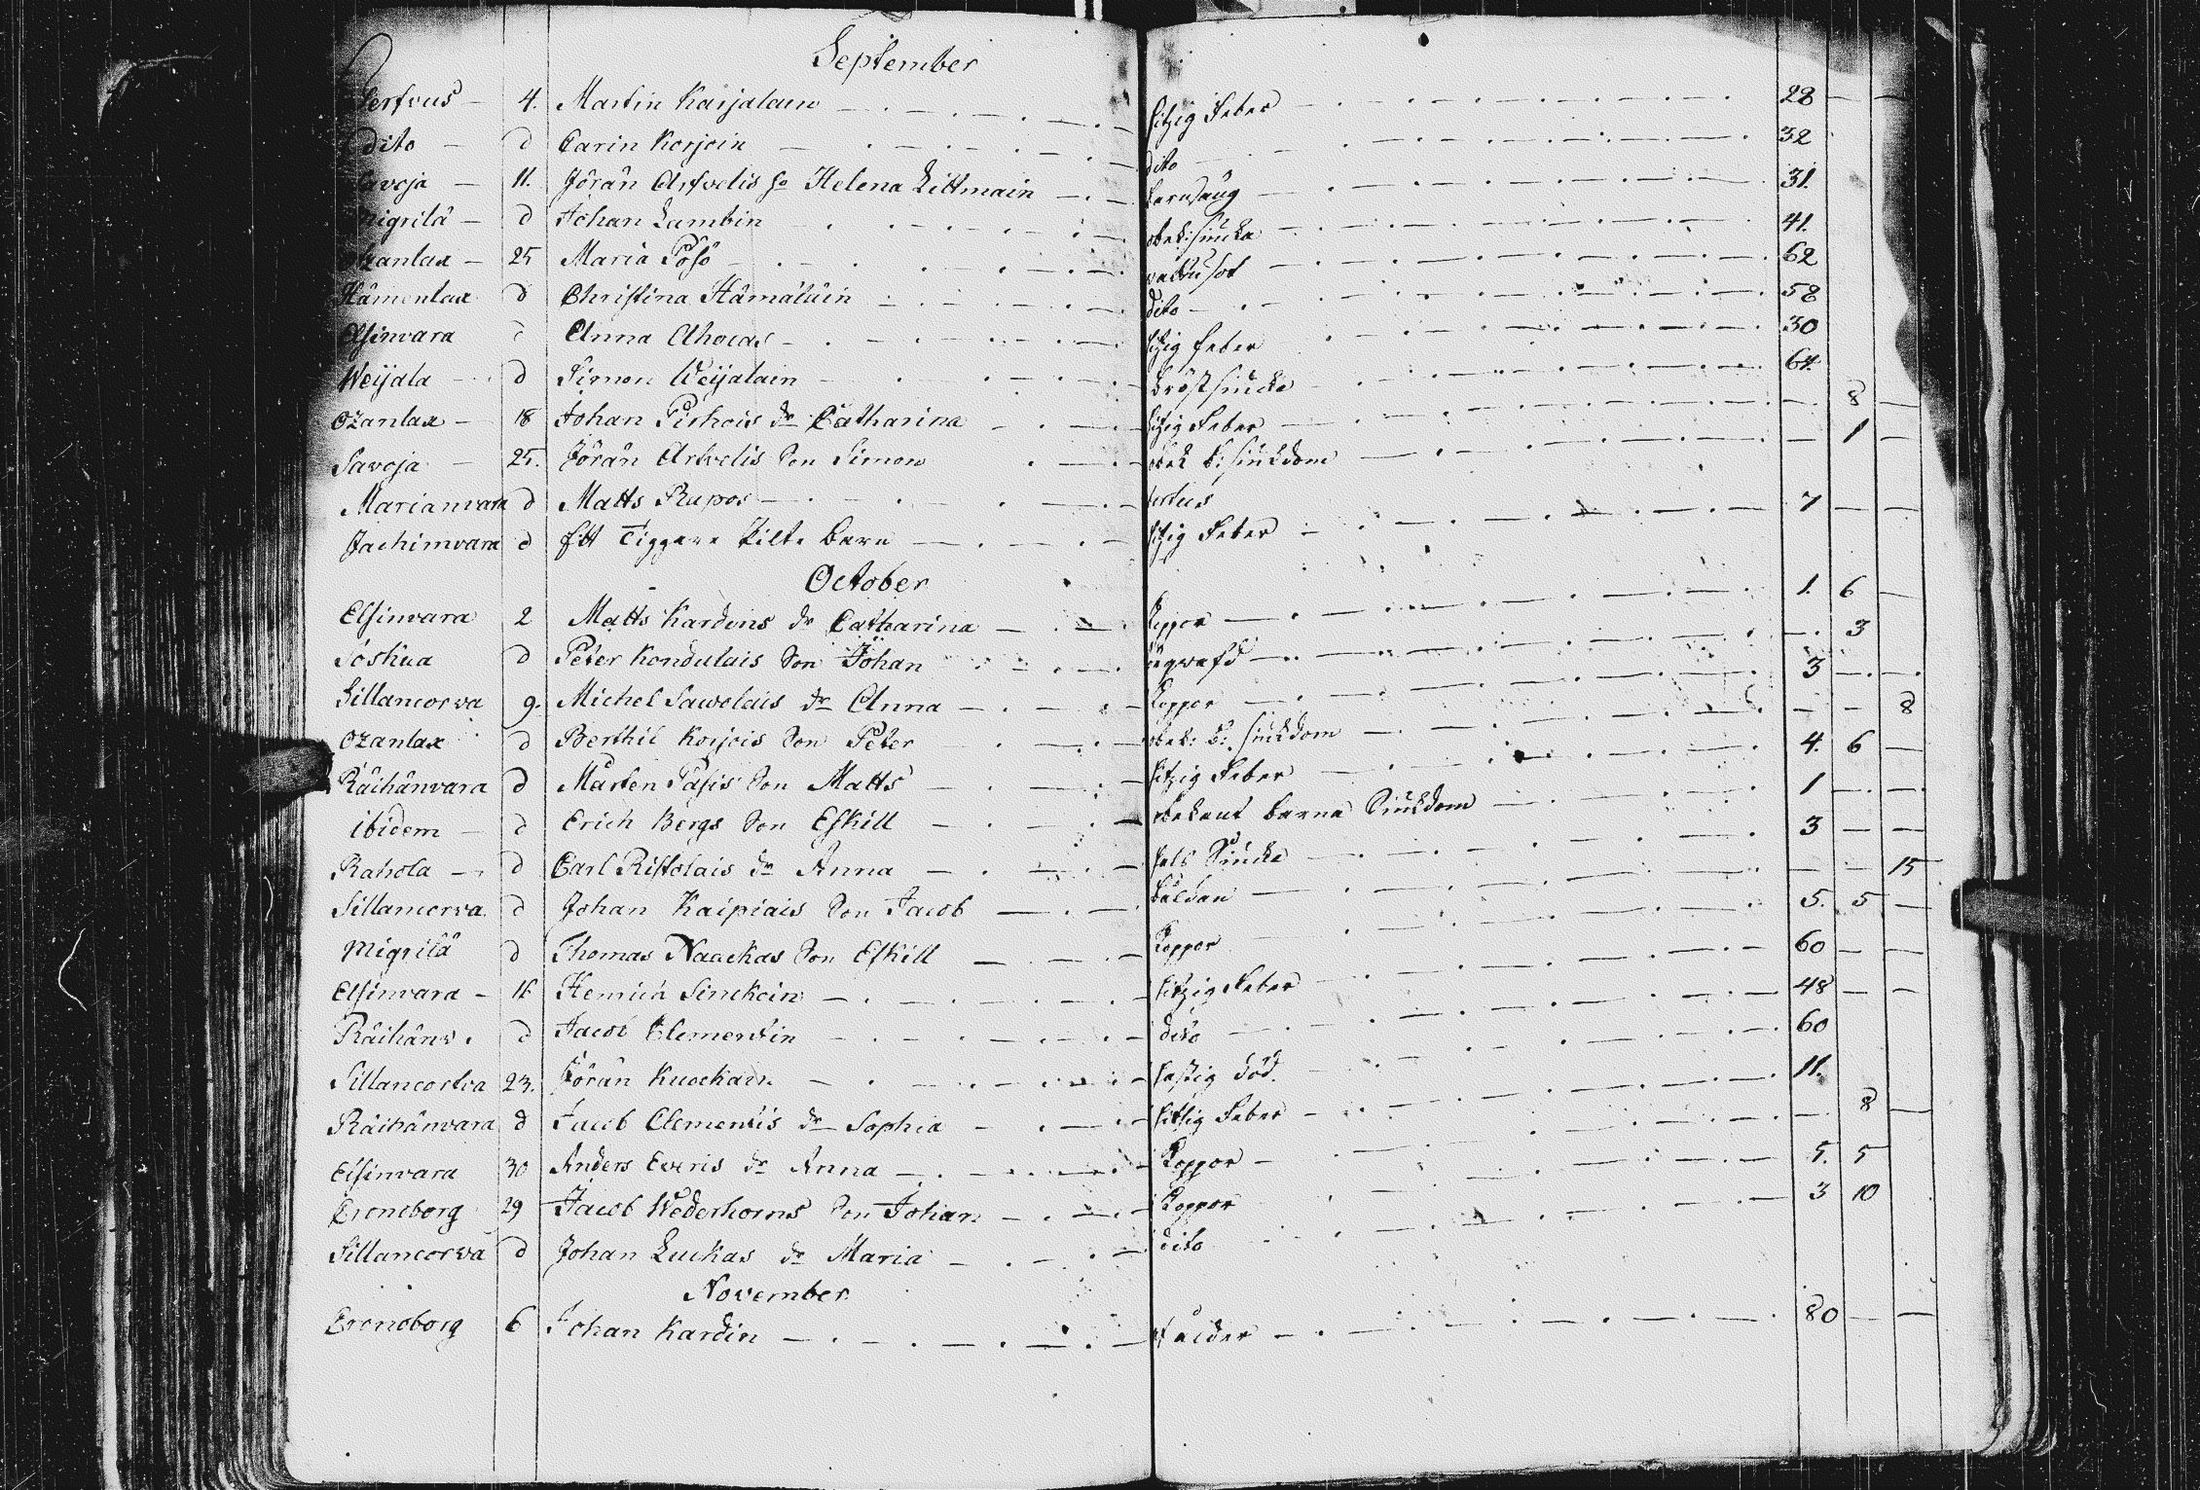 September
4. Martin Karjalain hitzig Feber 28
dito d Carin Korjoin dito 32
Savoja 11. Jöran Arfvelis ho Helena Littmain barnsäng 31.
Migrilä d Johan Lambin obek: siucka 41.
Ozanlax 25 Maria Pöhö wattusot 62
Hämenlax d Christina Hämäläin dito 58
Elsinvara d Anna Ahoias hitzig feber 30
Weijala d Simon Weijalain bröstsiucka 64.
Ozanlax 18 Johan Pirhois dr Catharina hitzig Feber 8
Savoja 25. Jöran Arfvelis Son Simon obek b: siuckdom 1
Marianvara d Matts Rupos
Jachimvara d Ett Tiggare Pilte Barn hitzig Feber 7
October
Elsinvara 2 Matts Kardens dr Catharina Koppor 1. 6
Soskua d Peter Kondulais Son Johan 3
Sillancorva 9. Michel Sawolais dr Anna Koppor 3
Ozanlax d Berthil Korjois Son Peter obek: b: siuckdom 8
Räihänvara d Mårten Päsis Son Matts hitzig Feber 4. 6
ibidem d Erich Bergs Son Eskill obekant barna Siuckdom 1
Rahola d Carl Ristolais dr Anna hals Siucka 3
Sillancorva d Johan Kaipiais Son Jacob 15
Migrilä d Thomas Naackas Son Eskill Koppor 5. 5
Elsinvara 16 Henrich Sinckoin hitzig Feber 60
Räihänv. d Jacob Clementin dito 48
Sillancorva 23. Jöran Kuockain hastig död 60
Räihänvara d Jacob Clementis dr Sophia hitsig Feber 11.
Elsinvara 30 Anders Everis dr Anna Koppor 8
Croneborg 29 Jacob Wederhorns Son Johan Koppor 5. 5
Sillancorva d Johan Luckas dr Maria dito 3 10
November
Cronoborg 6 Johan Kardin af ålder 80